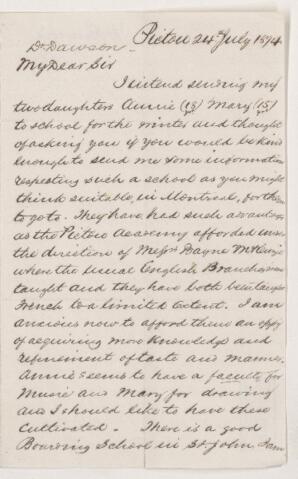 Pictou 24th July 1874
Dr Dawson
My Dear Sir
I intend sending my
two daughters Annie (18) Mary (15)
to school for the winter and thought
of asking you if you would be kind
enough to send me some information
respecting such a school as you might
think suitable, in Montreal, for them
to go to. They have had such advantages
as the Pictou Academy afforded under
the direction of Messrs Bayne McKenzie
where the usual English Branches were
taught and they have both been taught
French to a limited extent. I am
anxious now to afford them an oppy
of acquiring more knowledge and
refinement of taste and manner.
Annie seems to have a faculty for
Music and Mary for drawing
and I should like to have these
cultivated. There is a good
Boarding School in St John I am